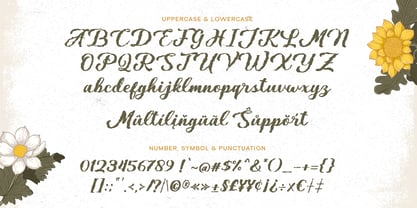 UPPERCASE & LOWERCASE
ABCDEFGHIJKLMN
OPQRSTUVWXYZ
abcdefghijklmnopqrstuvwxyz
Múltilíņgüàl Šuppórt
NUMBER, SYMBOL & PUNCTUATION
0123456789 !`~@#$%^&*()_-+={}
[]:;"'.<,>/?/|\©®«»±$£¥€¢¡¿×€/‡